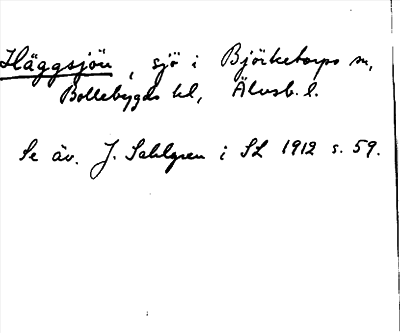 Häggsjön, sjö i Björketorps sn,
Bollebygds hd, Älvsb. l.
Se äv. J. Sahlgren i SL 1912 s. 59.